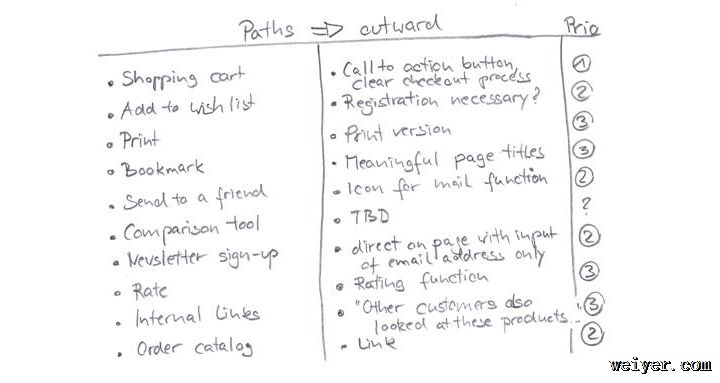 Paths => outward Prio
• Shopping cart
• Call to action button, clear checkout process
1
• Add to wish list
• Registration necessary?
2
• Print
• Print version
3
• Bookmark
• Meaningful page titles
3
• Send to a friend
• Icon for mail function
2
• Comparison tool
• TBD
?
• Newsletter sign-up
• direct on page with input of email address only
2
• Rate
• Rating function
3
• Internal Links
• "Other customers also looked at these products...
3
• Order catalog
• Link
2
weiyer.com